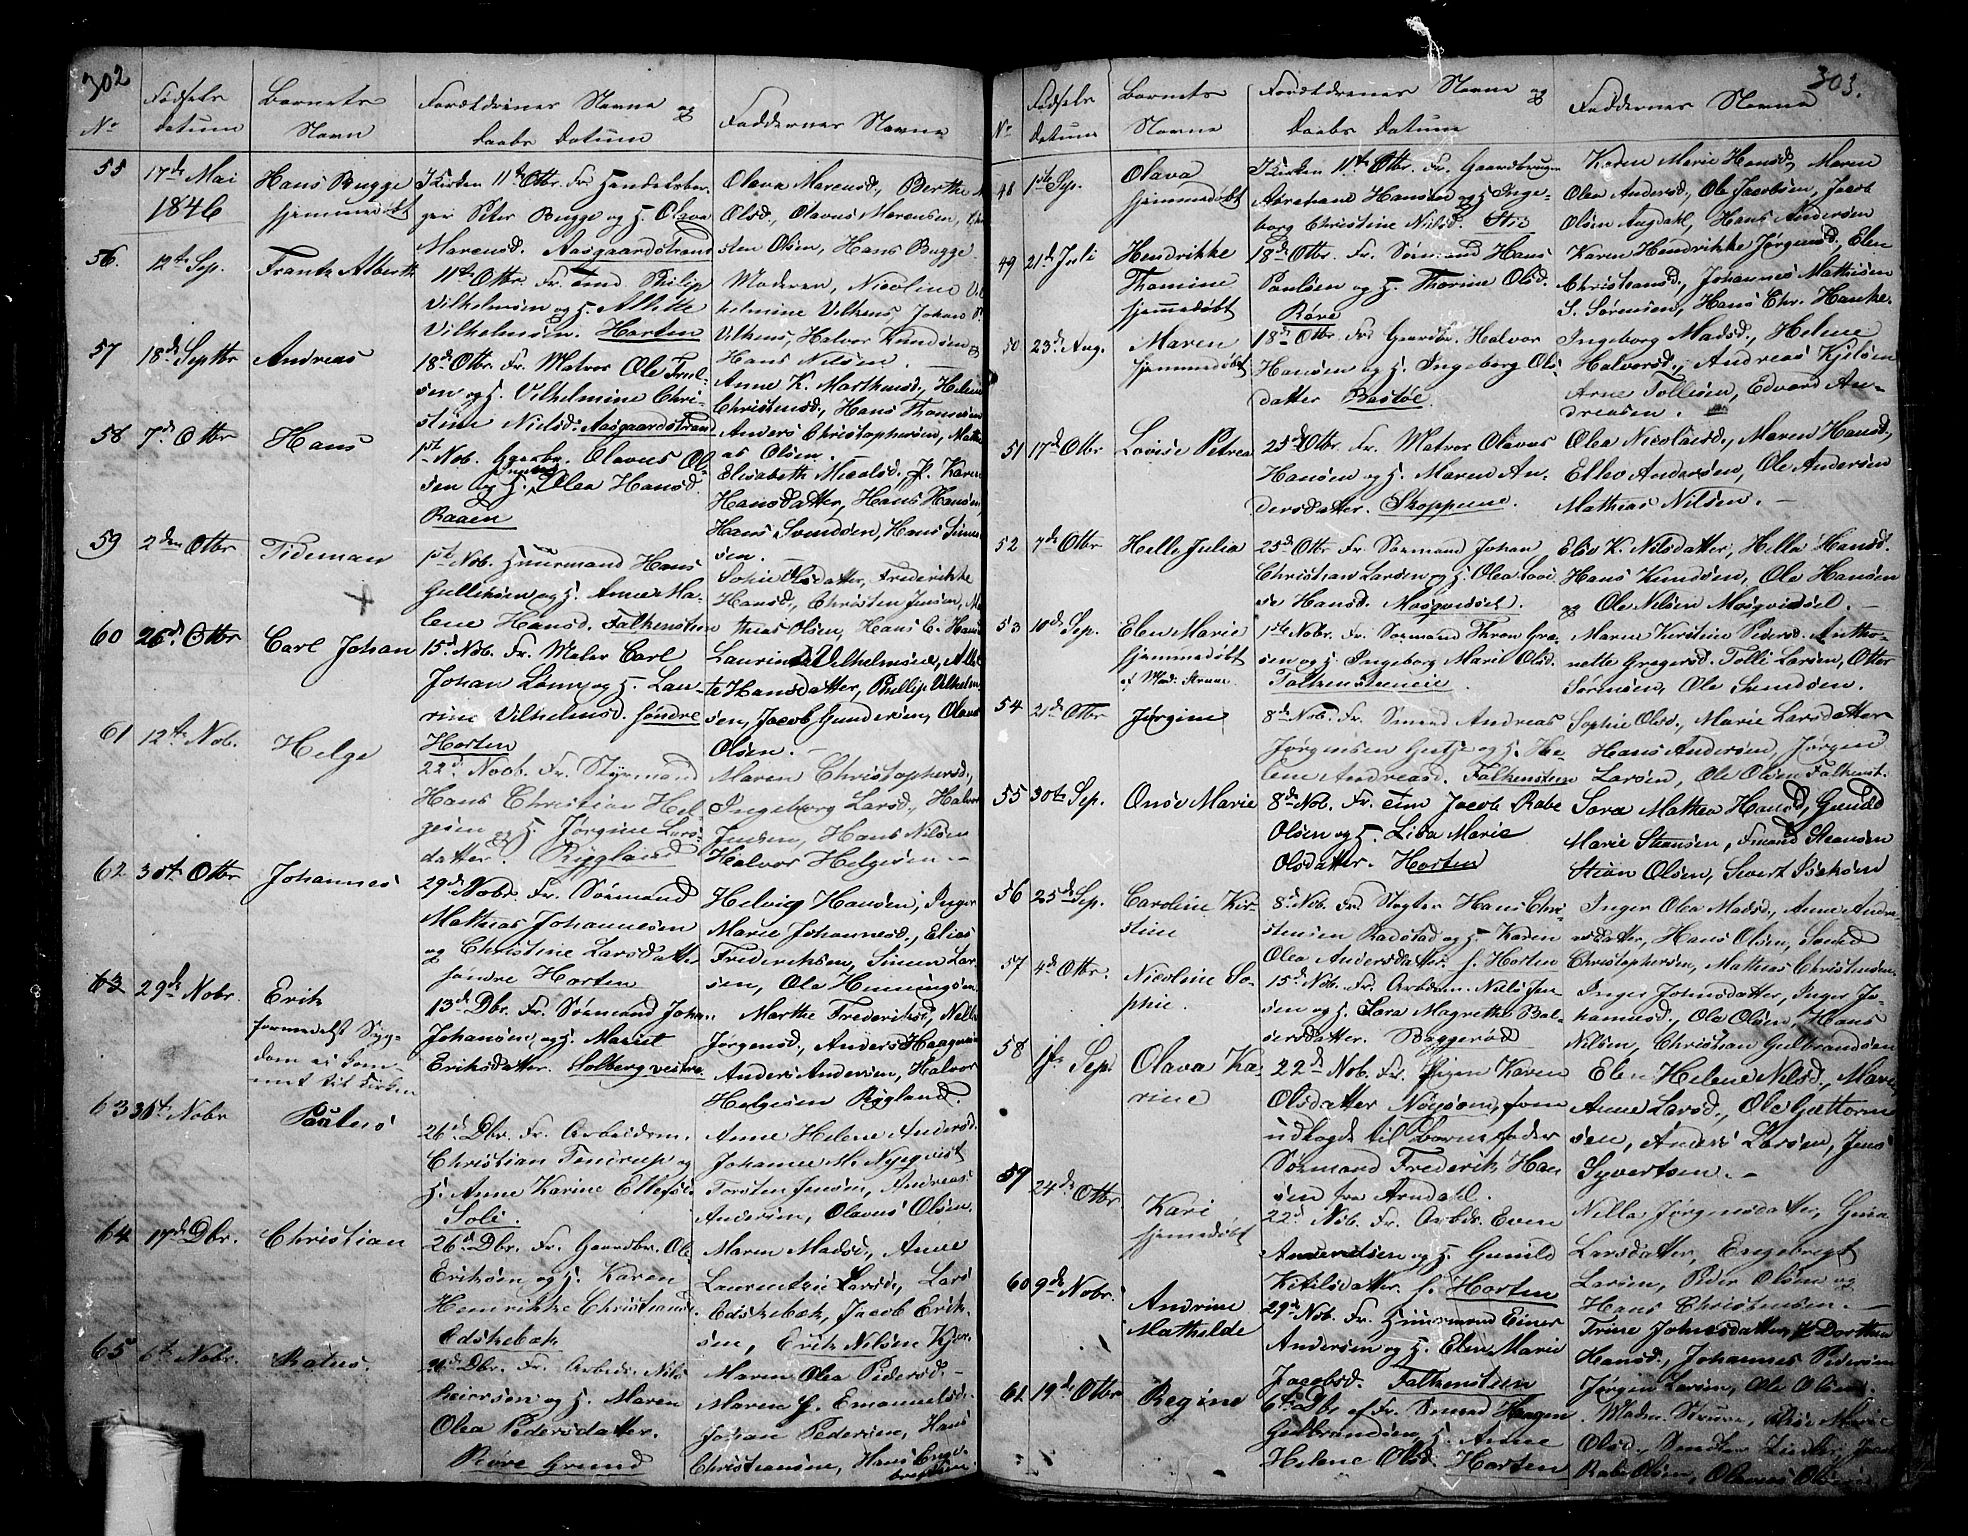 302
No
Fødsels datum
Barnets Navn
Forældrenes Navne og Daabs Datum
Faddernes Navne
55
17de Mai 1846
Hans Bugge
hjemmedøbt
I Kirken 11te Otbr. Fr. Handelsbor-
ger Peter Bugge og H. Olava
Marensd. Aasgaardstrand
Olava Marensd., Berthe M
Olsd., Olavus Marensen, Chri
sten Olsen, Hans Bugge
56.
12te Sep.
Frantz Alberth
11te Otbr. Fr. Philip
Vilhelmsen og H. Allette
Vilhelmsen. Horten
Moderen, Nicoline Vil
helmine Vilkens, Johan
Vilkens, Halvor Knudsen og
Hans Nilsen. —
57
18de Septbr
Andreas
18de Otbr. Fr. Matros Ole
sen og H. Vilhelmine Chri-
stine Nielsd. Aasgaardstrand
Anne K. Marthinsd., Helene
Christensd., Hans Thomesen
Anders Christophersen, Mathi
as Olsen.
58
7de Otbr
Hans
1ste Nob. Gaardbr. Olavus Ol-
sen og H. Olea Hansd.
Raaen
Elisabeth Nicolsd. Karen
Hansdatter, Hans Hansen,
Hans Svendsen, Hans Simen
sen.
59
2den Otbr
Tideman
1ste Nob. Huusmand Hans
Gulliksen og H. Anne Ma-
lene Hansd. Falkensteen
Sophie Olsdatter, Frederikke
Hansd., Christen Jensen, Ma
thias Olsen, Hans C. Hansen
60
26de Otbr
Carl Johan
15de Nob. Fr. Maler Carl
Johan Lømp og H. Lau-
rine Vilhelmsd. søndre
Horten
Laurine Vilhelmsen, Allet
te Hansdatter, Phillip Vilhelm
sen, Jacob Gundersen, Olaus
Olsen. —
61
12te Nob.
Helge
22de Novb. Fr. Styrmand
Hans Christian Hel-
gesen og H. Jørgine Lars
datter. Rygland
Maren Christophersd.,
Ingeborg Larsd., Halvor
Jensen, Hans Nilsen
Halvor Helgesen. —
62
30te Otbr
Johannes
29de Nobr. Fr. Sørmand
Mathias Johannesen
og Christine Larsdatter
søndre Horten
Helvig Hansen, Inger
Marie Johannesd., Elias
Frederiksen, Simen Lar-
sen, Ole Henningsen
63
29de Nobr.
Erik
formedelst Syg-
dom ei kom-
met til Kirken
13de Dbr. Fr. Sørmand Johan
Johansen, og H. Mariet
Eriksdatter. Solberg vestre
Marthe Frederiksd., Nella
Jørgensd., Anders Haagensen
Anders Andersen, Halvor
Helgesen Rygland.
63
30te Nobr
Paulus
26de Dbr. Fr. Arbeidsm.
Christian Tentrup og
H. Anne Karine Ellefsd.
Soli.
Anne Helene Andersd.
Johanne M. Nyqvist
Torsten Jensen, Andreas
Andersen, Olavus Olsen.
64
17de Dbr.
Christian
26de Dbr. Fr. Gaardbr. Ole
Eriksen og H. Karen
Henrikke Christiansd.
Adskebæk
Maren Madsd., Anne
Laurentzie Larsd., Lars
Adskebæk, Jacob Erik-
sen, Erik Nilsen Kjær
65
6te Nobr.
26de Dbr. Fr. Arbeids. Nils
Reiersen og H. Maren
Olea Pedersdatter.
Røre Grund
Maren Olea Pedersd. —
Maren H. Emanuelsd.
Johan Pedersen, Hans
Christiansen, Hans Enge-
bretsen.
303.
No
Fødsels datum
Barnets Navne
Forældrenes Navne og Daabs Datum
Faddernes Navne
48
1ste Sep.
Olava
hjemmedøbt
I Kirken 11te Otbr. Fr. Gaardbruger
Abraham Hansen og H. Inge-
borg Christine Nilsd. Stie
Karen Marie Hansd., Maren
Olea Andersd., Ole Jacobsen, Jacob
Olsen Augdahl, Hans Andersen
49
21de Juli
Hendrikke
Thomine
hjemmedøbt
18de Otbr. Fr. Sørmand Hans
Paulsen og H. Thorine Olsd.
Røre
Karen Hendrikke Jørgensd., Elen
Christiansd., Johannes Mathisen
S. Sørensen, Hans Chr. Hanke.
50
23de Aug.
Maren
hjemmedøbt
18de Otbr. Fr. Gaardbr. Halvor
Hansen og H. Ingeborg Ols
datter Bastøe.
Ingeborg Madsd., Helene
Halvorsd., Andreas Kjelsen
Arne Tollesen, Edvard An-
dreasen.
51
17de Otbr
Lovise Petrea
25de Otbr. Fr. Matros Olavus
Hansen og H. Maren An-
dersdatter. Skoppum
Olea Nicolaisd., Maren Hansd.,
Ellev Andersen, Ole Andersen
Mathias Nilsen. —
52
7de Otbr
Helle Julia
25de Otbr Fr. Sørmand Johan
Christian Larsen og H. Olea Lovi
se Hansd. Mosqvidsel.
Elise K. Nilsdatter, Hella Hansd.
Hans Knudsen, Ole Hansen
og Ole Nilsen Mosqvidsel. —
53
10de Sep.
Elen Marie
hjemmedøbt
af Mad: Struve
1ste Nobr. Fr. Sørmand Thron Gra-
sen og H. Ingeborg Marie Olsd.
Falkensteneie.
Maren Kirstine Pedersd. Antho-
nette Gragersd. Tolli Larsen, Otter
Sørensen, Ole Svendsen.
54
21de Otbr
Jørgine
8de Nob. Fr. Smed Andreas
Jørgensen Gutze og H. He-
lene Andreasd. Falkensteen
Sophie Olsd., Marie Larsdatter
Hans Andersen, Jørgen
Larsen, Ole Olsen Falkenst.
55
30te Sep.
Onsø Marie
8de Nob. Fr. Tim. Jacob Rabe
Olsen og H. Lisa Marie
Olsdatter. Horten
Sara Mathea Hansd., Gunild
Marie Steansen, Amund Steansen
Stian Olsen, Sivert Isaksen
56
25de Sep.
Caroline Kir-
stine
8de Nob. Fr. Slagter Hans Chri-
stensen Radstad og H. Karen
Olea Andersdatter. s. Horten
Inger Olea Madsd., Anne Andre
asdatter, Hans Olsen, Svend
Christophersen, Mathias Christensen
57
4de Otbr.
Nicoline So-
phie.
15de Nob. Fr. Arbeidsm. Nils Jen-
sen og H. Sara Magrethe Bal-
sersdatter. Baggerød
Inger Johnsdatter, Inger Jo-
hannesd., Ole Olsen, Hans
Nilsen, Christian Gulbrandsen
58
1ste Sep.
Olava Ka-
rine
22de Nob. Fr. Pigen Karen
Olsdatter Nøysom, som
udlagde til Barnefader
Sørmand Frederik Han
sen fra Arndahl.
Elen Helene Nilsd., Maria
Anne Larsd., Ole Guttorm
sen, Anders Larsen, Jens
Syvertsen. —
59
24de Otbr.
Kari
hjemmedøbt
22de Nob. Fr. Arbds. Even
Amundsen og H. Gunild
Kitilsdatter s. Horten
Nilla Jørgensdatter, Gina
Larsdatter, Engebregt
Larsen, Peder Olsen og
Hans Christensen. —
60
9de Nobr.
Andrine
Mathilde
29de Nob. Fr. Huusmand Einer
Andersen og H. Elen Marie
Jacobsd. Falkensteen
Trine Johnsdatter, Dorthea
Hansd., Johannes Pedersen
Jørgen Larsen, Ole Olsen
61
19de Otbr
Regine
6te Dbr af Fr. Smed Haagen
Gulbrandsen, H. Anne
Helene Olsd. Horten
Madm. Struve, Else Marie
Olsd., Linder, Jacob
Rabe Olsen, Olavus